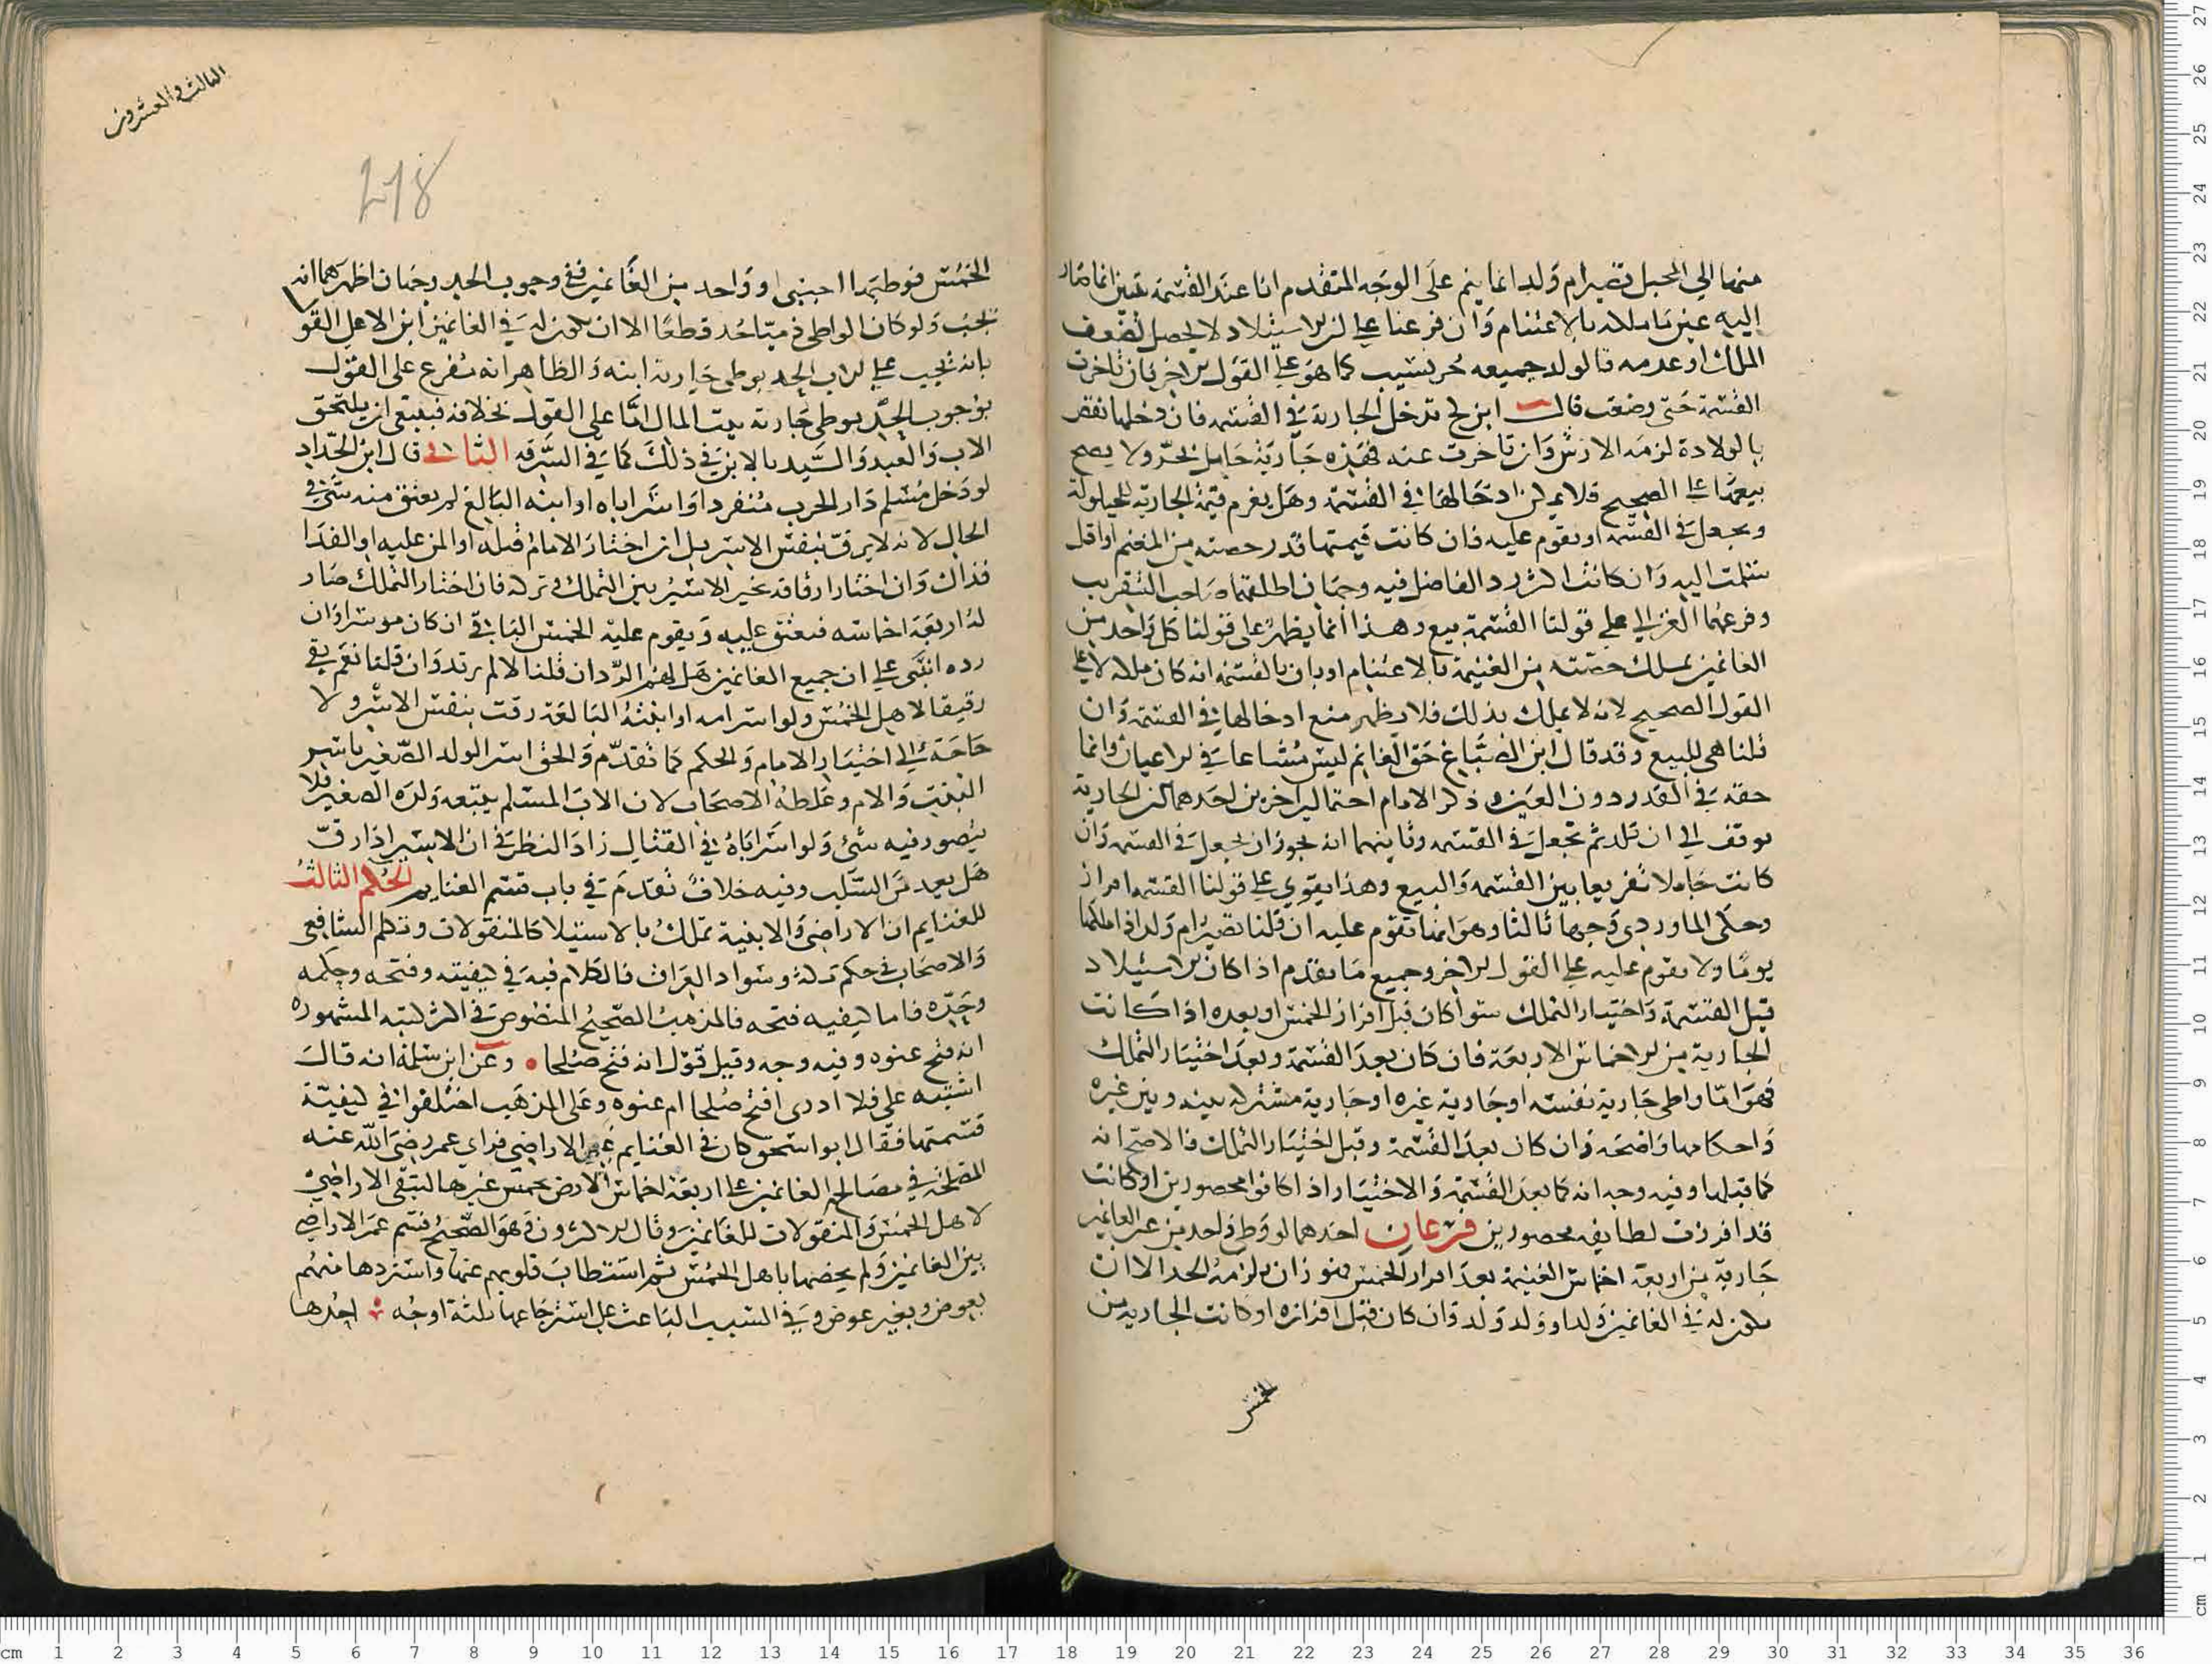 منها الي المحبل تصير ام ولد انما يتم على الوجه المتقدم انا عند القسمة نتبين انما صار
إليه عين ما ملكه بالاغتنام وان فرعنا علي ان الاستيلاد لا يحصل لضعف
الملك او عدمه فالولد جميعه حر نسيب كما هو علي القول الاخر فان تاخرت
القسمة حتى وضعت قال ابن كج تدخل الجارية في القسمة فان دخلها نقص
بالولادة لزمه الارش وان تاخرت عنه فهذه جارية حامل بحر ولا يصح
بيعها علي الصحيح فلا يمكن ادخالها في القسمة وهل يغرم قيمة الجارية للحيلولة
ويجعل في القسمة او تقوم عليه فان كانت قيمتها قدر حصته من المغنم او اقل
سلمت اليه وان كانت اكثر رد الفاضل فيه وجهان اطلقهما صاحب التقريب
وفرعهما الغزالي علي قولنا القسمة بيع وهذا انما يظهر على قولنا كل واحد من
الغانمين يملك حصته من الغنيمة بالاغتنام او بان بالقسمة انه كان ملكه لا علي
القول الصحيح لانه لا يملك بذلك فلا يظهر منع ادخالها في القسمة وان
قلنا هي للبيع وقد قال ابن الصباغ حق الغانم ليس مشاعا في الاعيان وانما
حقه في القدر دون العين وذكر الامام احتمالين اخرين احدهما ان الجارية
توقف الي ان تلد ثم تجعل في القسمة وثانيهما انه يجوز ان تجعل في القسمة وان
كانت حاملا تفريعا بين القسمة والبيع وهذا يقوي علي قولنا القسمة افراز
وحكى الماوردي وجها ثالثا وهو انها تقوم عليه ان قلنا تصير ام ولد اذا ملكها
يوما ولا تقوم عليه علي القول الاخر وجميع ما تقدم اذا كان الاستيلاد
قبل القسمة واختيار التملك سوا كان قبل افراز الخمس او بعده اذا كانت
الجارية من الاخماس الاربعة فان كان بعد القسمة وبعد اختيار التملك
فهو اما واطي جارية نفسه او جارية غيره او جارية مشتركة بينه وبين غيره
واحكامها واضحة وان كان بعد القسمة وقبل اختيار التملك فالاصح انه
كما قبلها وفيه وجه انه كما بعد القسمة والاختيار اذا كانوا محصورين او كانت
قد افرزت لطايفه محصورين فرعان احدهما لو وطي واحد من غير الغانمين
جارية من اربعة اخماس الغنيمة بعد افراز الخمس فهو زان يلزمه الحد الا ان
يكون له في الغانمين ولد او ولد ولد وان كان قبل افرازه او كانت الجارية من
الخمس
الثالث والعشرون
218
الخمس فوطيها اجنبي او واحد من الغانمين ففي وجوب الحد وجهان اظهرهما انه
يجب ولو كان الواطي ذميا حد قطعا الا ان يكون له في الغانمين ابن الاعلي القول
بانه يجب علي الاب الحد بوطي جارية ابنه والظاهر انه تفرع على القول
بوجوب الحد بوطي جارية بيت المال اما على القول بخلافه فينبغي ان يلتحق
الاب والعبد والسيد بالابن في ذلك كما في السرقة الثاني قال ابن الحداد
لو دخل مسلم دار الحرب منفردا واسر اباه او ابنه البالغ لم يعتق منه شي في
الحال لانه لا يرق بنفس الاسر بل ان اختار الامام قتله او المن عليه او الفدا
فذاك وان اختار ارقاقه تخير الاسير بين التملك وتركه فان اختار التملك صار
له اربعة اخماسه فيعتق عليه ويقوم عليه الخمس الباقي ان كان موسرا وان
رده انبنى علي ان جميع الغانمين هل لهم الرد ان قلنا لا لم يرتد وان قلنا نعم بقي
رقيقا لاهل الخمس ولو اسر امه او ابنته البالغة رقت بنفس الاسر ولا
حاجة الي اختيار الامام والحكم كما تقدم والحق اسر الولد الصغير باسر
البنت والام وغلطه الاصحاب لان الاب المسلم يتبعه ولده الصغير فلا
يتصور فيه سبي ولو اسر اباه في القتال زاد النظر في ان الاسير اذا رق
هل يعد من السلب وفيه خلاف تقدم في باب قسم الغنايم الحكم الثالث
للغنايم ان الاراضي والابنية تملك بالاستيلا كالمنقولات وتكلم الشافعي
والاصحاب في حكم مكة وسواد العراق فالكلام فيه في كيفيته وفتحه وحكمه
وحده فاما كيفيه فتحه فالمذهب الصحيح المنصوص في اكثر كتبه المشهورة
انه فتح عنوه وفيه وجه وقيل قول انه فتح صلحا وعن ابن سلمة انه قال
اشتبه علي فلا ادري افتح صلحا ام عنوه وعلى المذهب اختلفوا في كيفية
قسمتها فقال ابو اسحق كان في الغنايم غير الاراضي فراي عمر رضي الله عنه
المصلحة في مصالحة الغانمين علي اربعة اخماس الارض بخمس غيرها لتبقى الاراضي
لاهل الخمس والمنقولات للغانمين وقال الاكثرون وهو الصحيح قسم عمر الاراضي
بين الغانمين ولم يخصها باهل الخمس ثم استطاب قلوبهم عنها واستردها منهم
بعوض وبغير عوض وفي السبب الباعث على استرجاعها ثلثة اوجه احدها